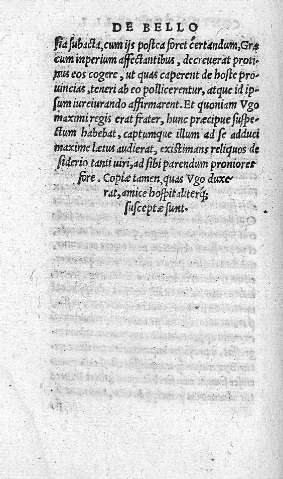 DE BELLO
sia subacta, cum ijs postea foret certandum, Græ
cum inperium affectantibus, decreuerat proti
nus eos cogere, ut quas caperent de hoste pro
uincias, teneri ab eo pollicerentur, atque id ip
sum iureiurando affirmarent. Et quoniam Vgo
maximi regis erat frater, hunc præcipue suspe
ctum habebat, captumque illum ad se adduci
maxime lætus audierat, existimans reliquos de
siderio tanti uiri, ad sibi parendum proniores
fore. Copiæ tamen, quas Vgo duxe
rat, amice hospitaliterq́;
susceptæ sunt.